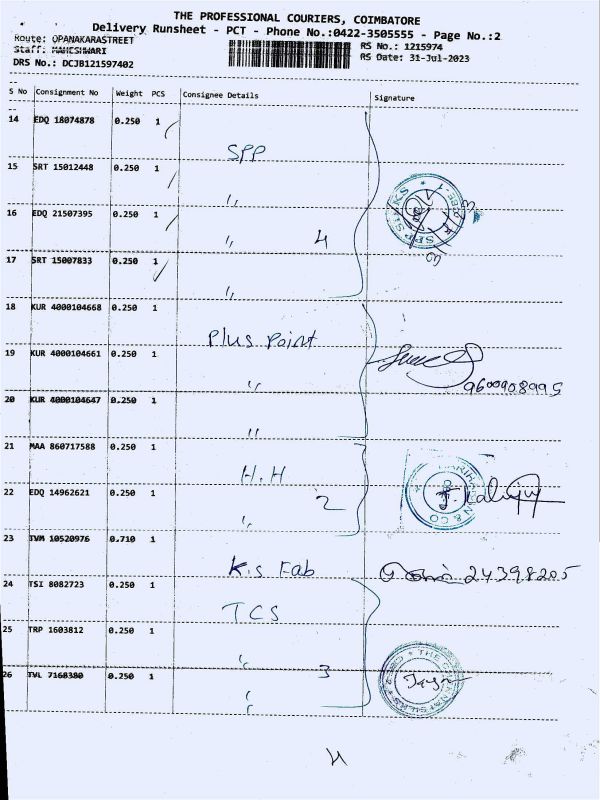 THE PROFESSIONAL COURIERS, COIMBATORE
Delivery Runsheet - PCT - Phone No.:0422-3505555 - Page No.:2
Route: OPANAKARASTREET RS No.: 1215974
Staff: MAHESHWARI RS Date: 31-Jul-2023
DRS No.: DCJB121597402
S No Consignment No Weight PCS Consignee Details Signature
14 EDQ 18074878 0.250 1
SPP
15 SRT 15012448 0.250 1
"
16 EDQ 21507395 0.250 1
" 4
17 SRT 15007833 0.250 1
"
18 KUR 4000104668 0.250 1
Plus Point
19 KUR 4000104661 0.250 1
" 9600908995
20 KUR 4000104647 0.250 1
"
21 MAA 860717588 0.250 1
H.H
22 EDQ 14962621 0.250 1
" 2
23 TVM 10520976 0.710 1
K.S Fab 24398205
24 TSI 8082723 0.250 1
TCS
25 TRP 1603812 0.250 1
"
26 TVL 7168380 0.250 1
3
"